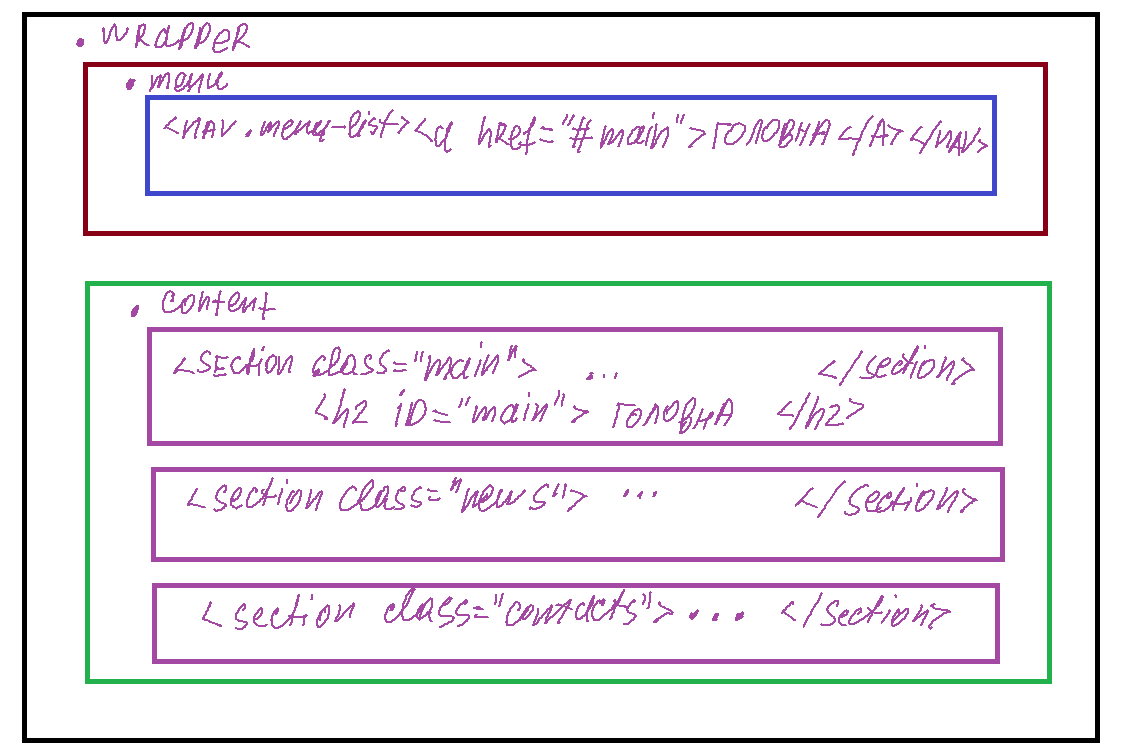 . WRaPPeR
. menu
<nav .menu-list><a hRef="#main">ГОЛОВНА</A></nav>
. Content
<SECtion class="main"> ... </section>
<h2 iD="main"> ГОЛОВНА </h2>
<section class="news"> ... </section>
<section class="contacts"> ... </section>